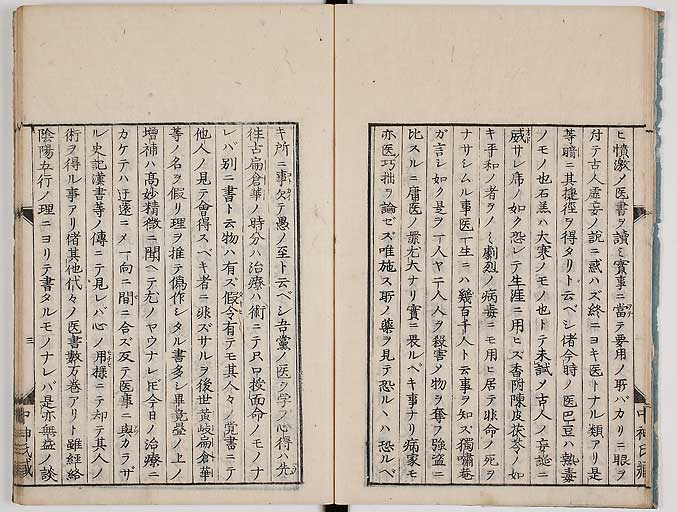 ヒ憤激ノ医書ヲ讀ミ實事ニ當テ要用ノ所バカリニ眼ヲ
付テ古人虚妄ノ説ニ惑ハズ終ニヨキ医トナル類アリ是
等暗ニ其捷徑ヲ得タリト云ベシ偖今時ノ医巴豆ハ熱毒
ノモノ也石膏ハ大寒ノモノ也トテ未試メ古人ノ妄誕ニ
威サレ虎ノ如ク恐レテ生涯ニ用ヒズ香附陳皮茯苓ノ如
キ平和ノ者ヲノミ劇烈ノ病毒ニモ用ヒ居テ非命ノ死ヲ
ナサシムル事医一生ニハ幾百千人ト云事ヲ知ズ獨嘯菴
ガ言シ如ク是ヲ一人ヤ二人人ヲ殺害メ物ヲ奪フ強盗ニ
比スルニ庸医ノ罪尤大ナリ實ニ畏ルベキ事ナリ病家モ
亦医巧拙ヲ論ゼズ唯施ス所ノ藥ヲ見テ恐ルヽハ恐ルベ
キ所ニ事欠テ愚ノ至ト云ベシ吾黨ノ医ヲ学フ心得ハ先
往古扁倉華ノ時分ハ治療ハ術ニテ尺口授面命ノモノナ
レバ別ニ書ト云物ハ有ズ假令有テモ其人々ノ覚書ニテ
他人ノ見テ會得スベキ者ニ非ズサルヲ後世黄岐扁倉華
等ノ名ヲ假リ理ヲ推テ偽作シタル書多シ畢竟疊ノ上ノ
増補ハ高妙精微ニ聞ヘテ尤ノヤウナレ𪜈今日ノ治療ニ
カケテハ迂遠ニメ一向ニ間ニ合ズ反テ医事ニ與カラザ
ル史記漢書等ノ傳ニテ見レバ心ノ用樣ニテ却テ其人ノ
術ヲ得ル事アリ偖其他代々ノ医書數万巻アリト雖経絡
陰陽五行ノ理ニヨリテ書タルモノナレバ是亦無益ノ談
三
中神氏藏
中神氏藏